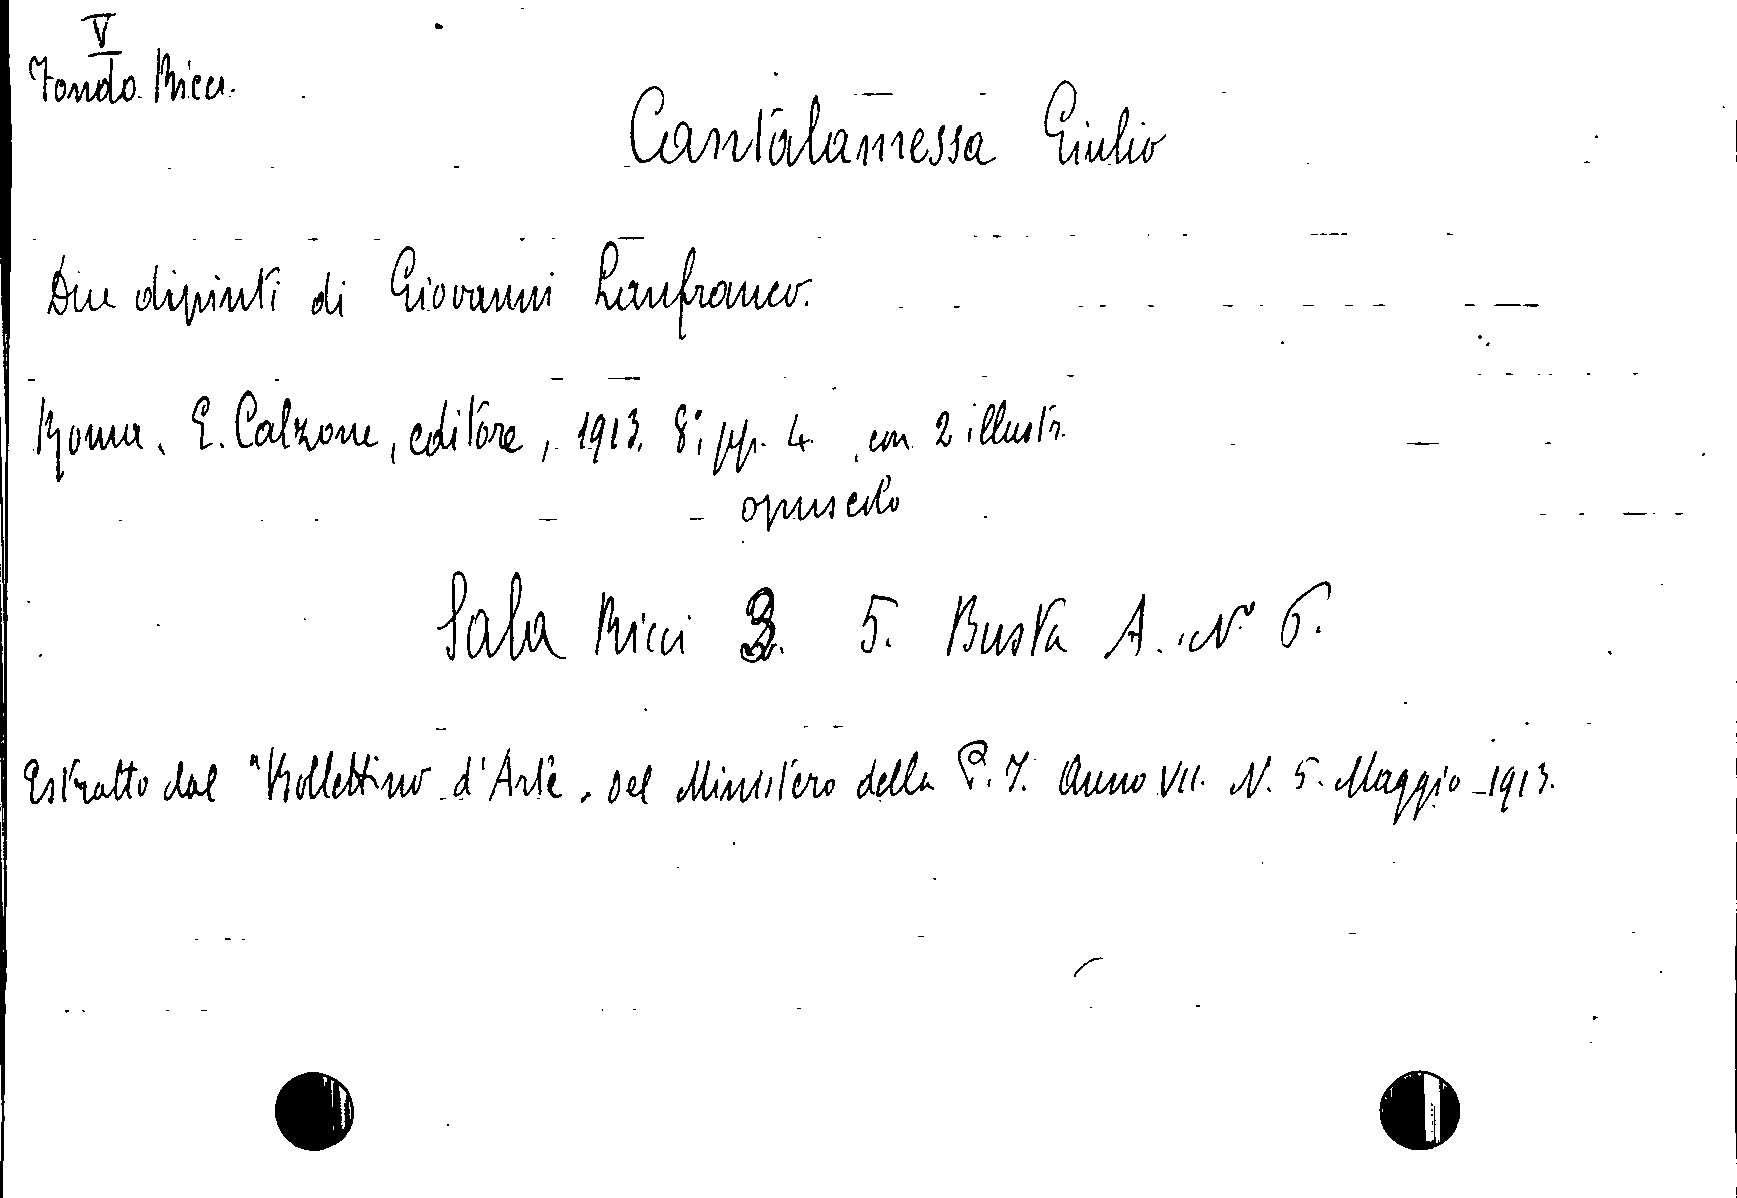 V
Fondo Ricci.
Cantalamessa Giulio
Due dipinti di Giovanni Lanfranco.
Roma. E. Calzone, editore, 1913. 8°, pp. 4, con 2 illustr.
opuscolo
Sala Ricci 3. 5. Busta A. N° 6.
Estratto dal "Bollettino d'Arte" del Ministero della P. I. Anno VII. N. 5. Maggio 1913.